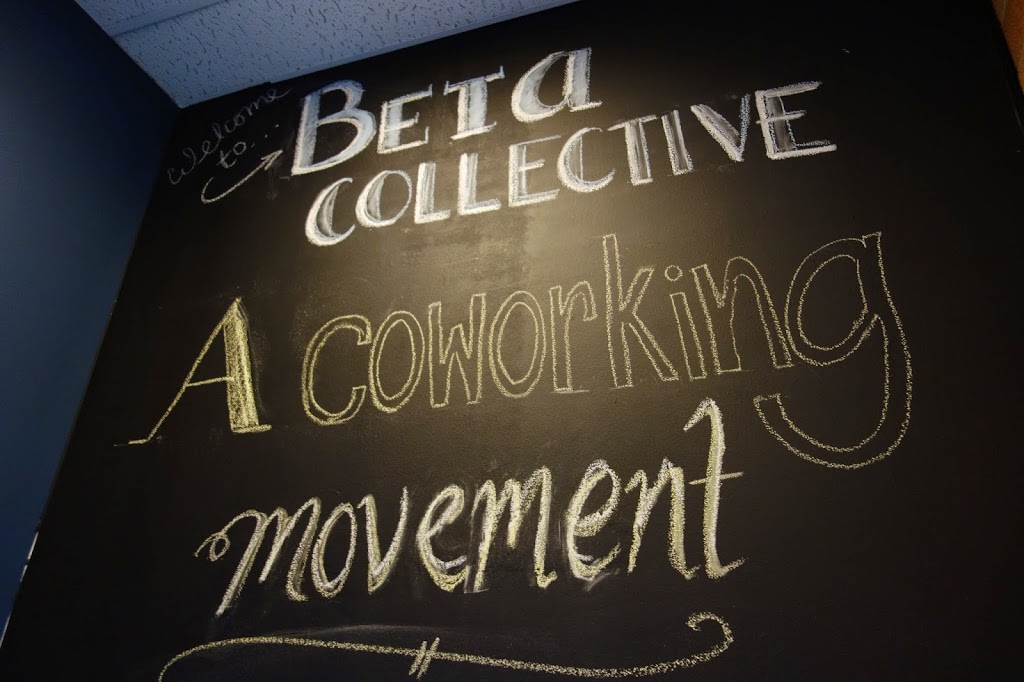 Welcome
to....
BETa
COLLECTIVE
A coworking
movement